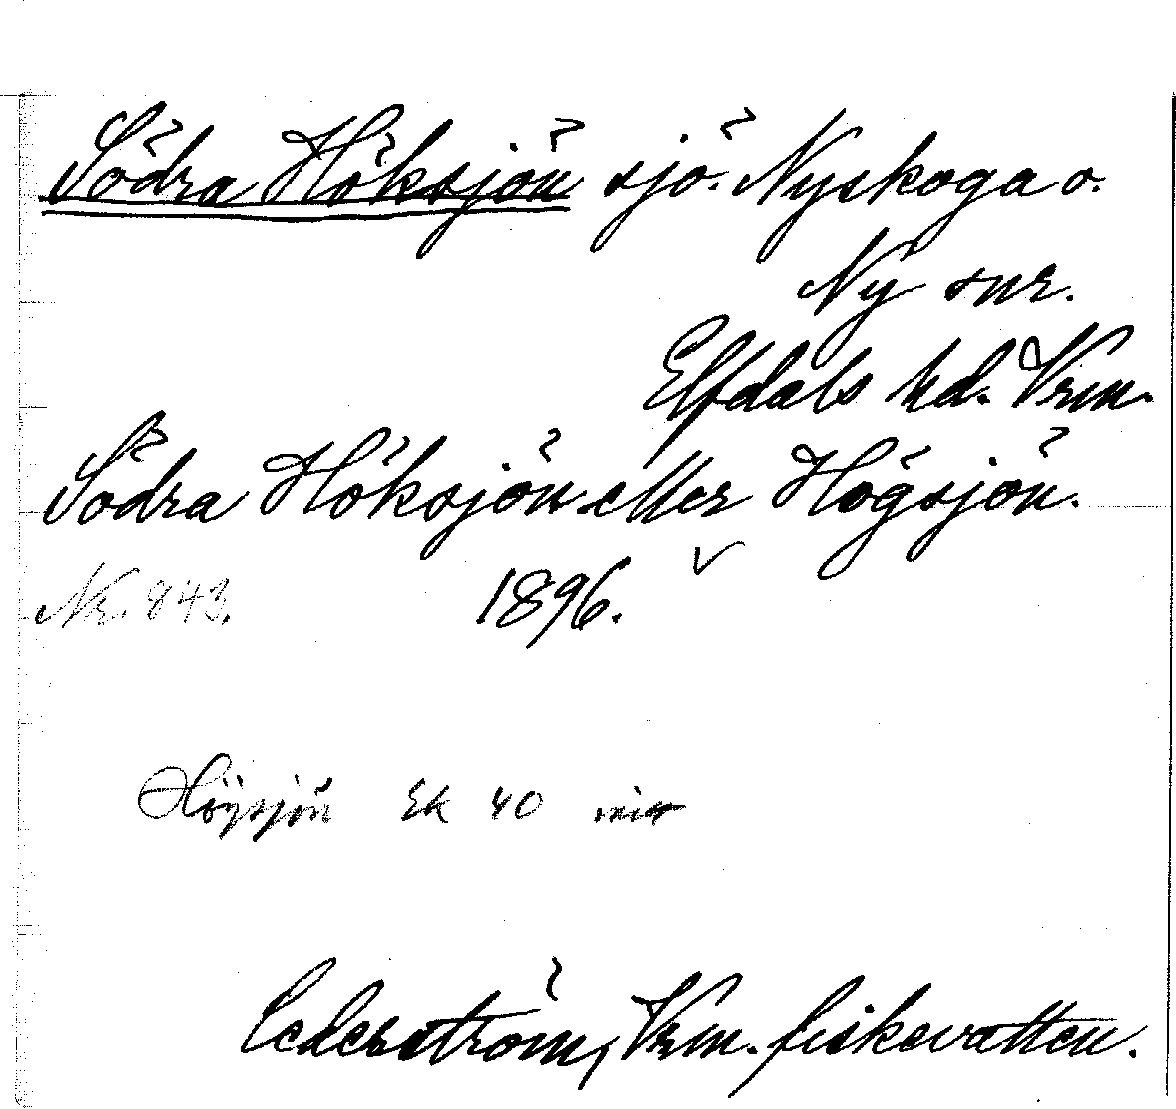 Södra Höksjön sjö. Nyskoga o.
Ny snr.
Elfdals hd. Vrm.
Södra Höksjön eller Högsjön.
Nr. 843. 1896. ✓
Högsjön Ek 40
Cederström, Vrm. fiskevatten.